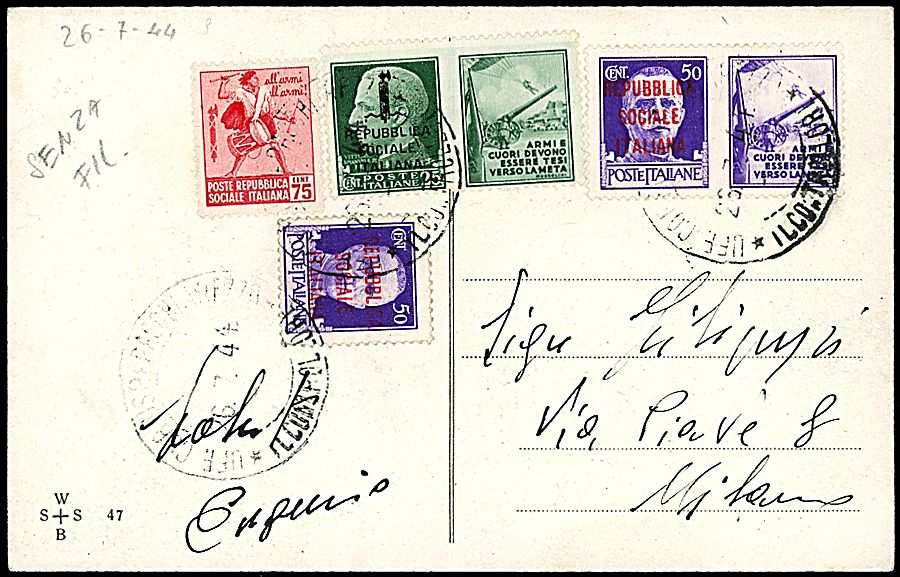 26-7-44
SENZA
FIL.
all'armi
all'armi!
POSTE REPUBBLICA
SOCIALE ITALIANA
CENT 75
REPUBBLICA
SOCIALE
ITALIANA
CENT. POSTE 25
ITALIANE
ARMI E
CUORI DEVONO
ESSERE TESI
VERSO LA META
CENT. 50
REPUBBLICA
SOCIALE
ITALIANA
POSTE ITALIANE
ARMI E
CUORI DEVONO
ESSERE TESI
VERSO LA META
CENT. 50
SOCIALE
POSTE ITALIANE
7.44
Via Piave 8
Milano
Eugenio
W
S S 47
B